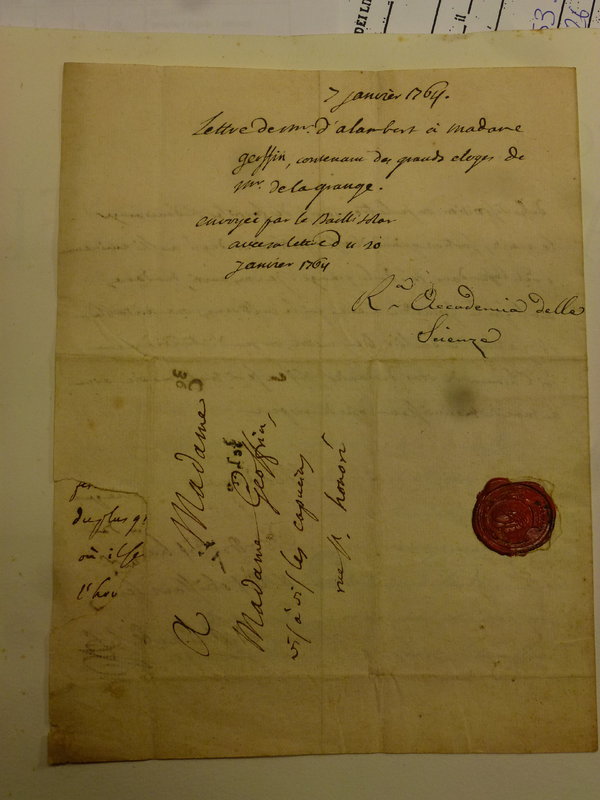 7 janvier 1764.
Lettre de mr. d'alambert à madame
geoffrin, contenant des grands eloges de
mr. de la grange.
envoyée par le Bailli solar
avec sa lettre du 10
janvier 1764
Ra Accademia delle
Scienze
A Madame
Madame Geoffrin,
vis à vis les capucins
rue st. honoré
du plus g
où il se
l'hon
36